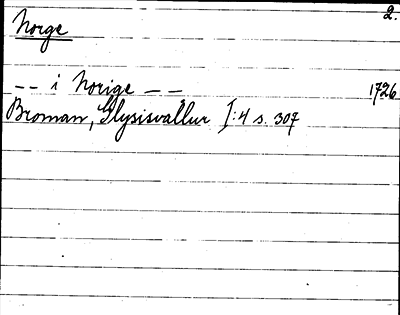 2.
Norge
-- i Norige -- 1726
Broman, Glysisvallur I:4 s. 307